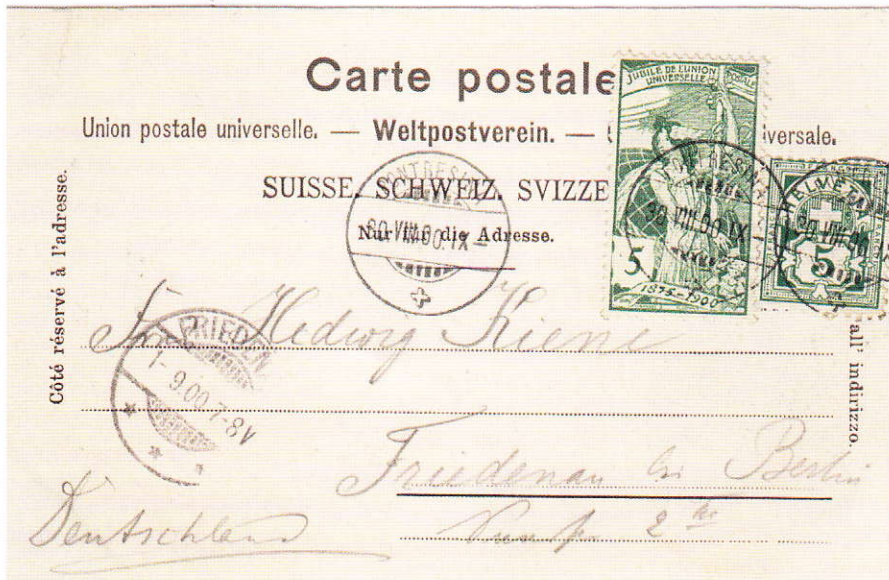 Carte postale
Union postale universelle. — Weltpostverein. — iversale.
SUISSE. SCHWEIZ. SVIZZE
Nur für die Adresse.
Côté réservé à l'adresse.
all' indirizzo.
JUBILÉ DE L'UNION POSTALE
UNIVERSELLE
5
1875-1900
HELVETIA
5
PONTRESINA
30.VIII.00.IX-
PONTRESINA
30.VIII.00.IX-
30.VIII.00
FRIEDEN
1-9.00 7-8V
Hedwig Kiene
Friedenau bei Berlin
Deutschland